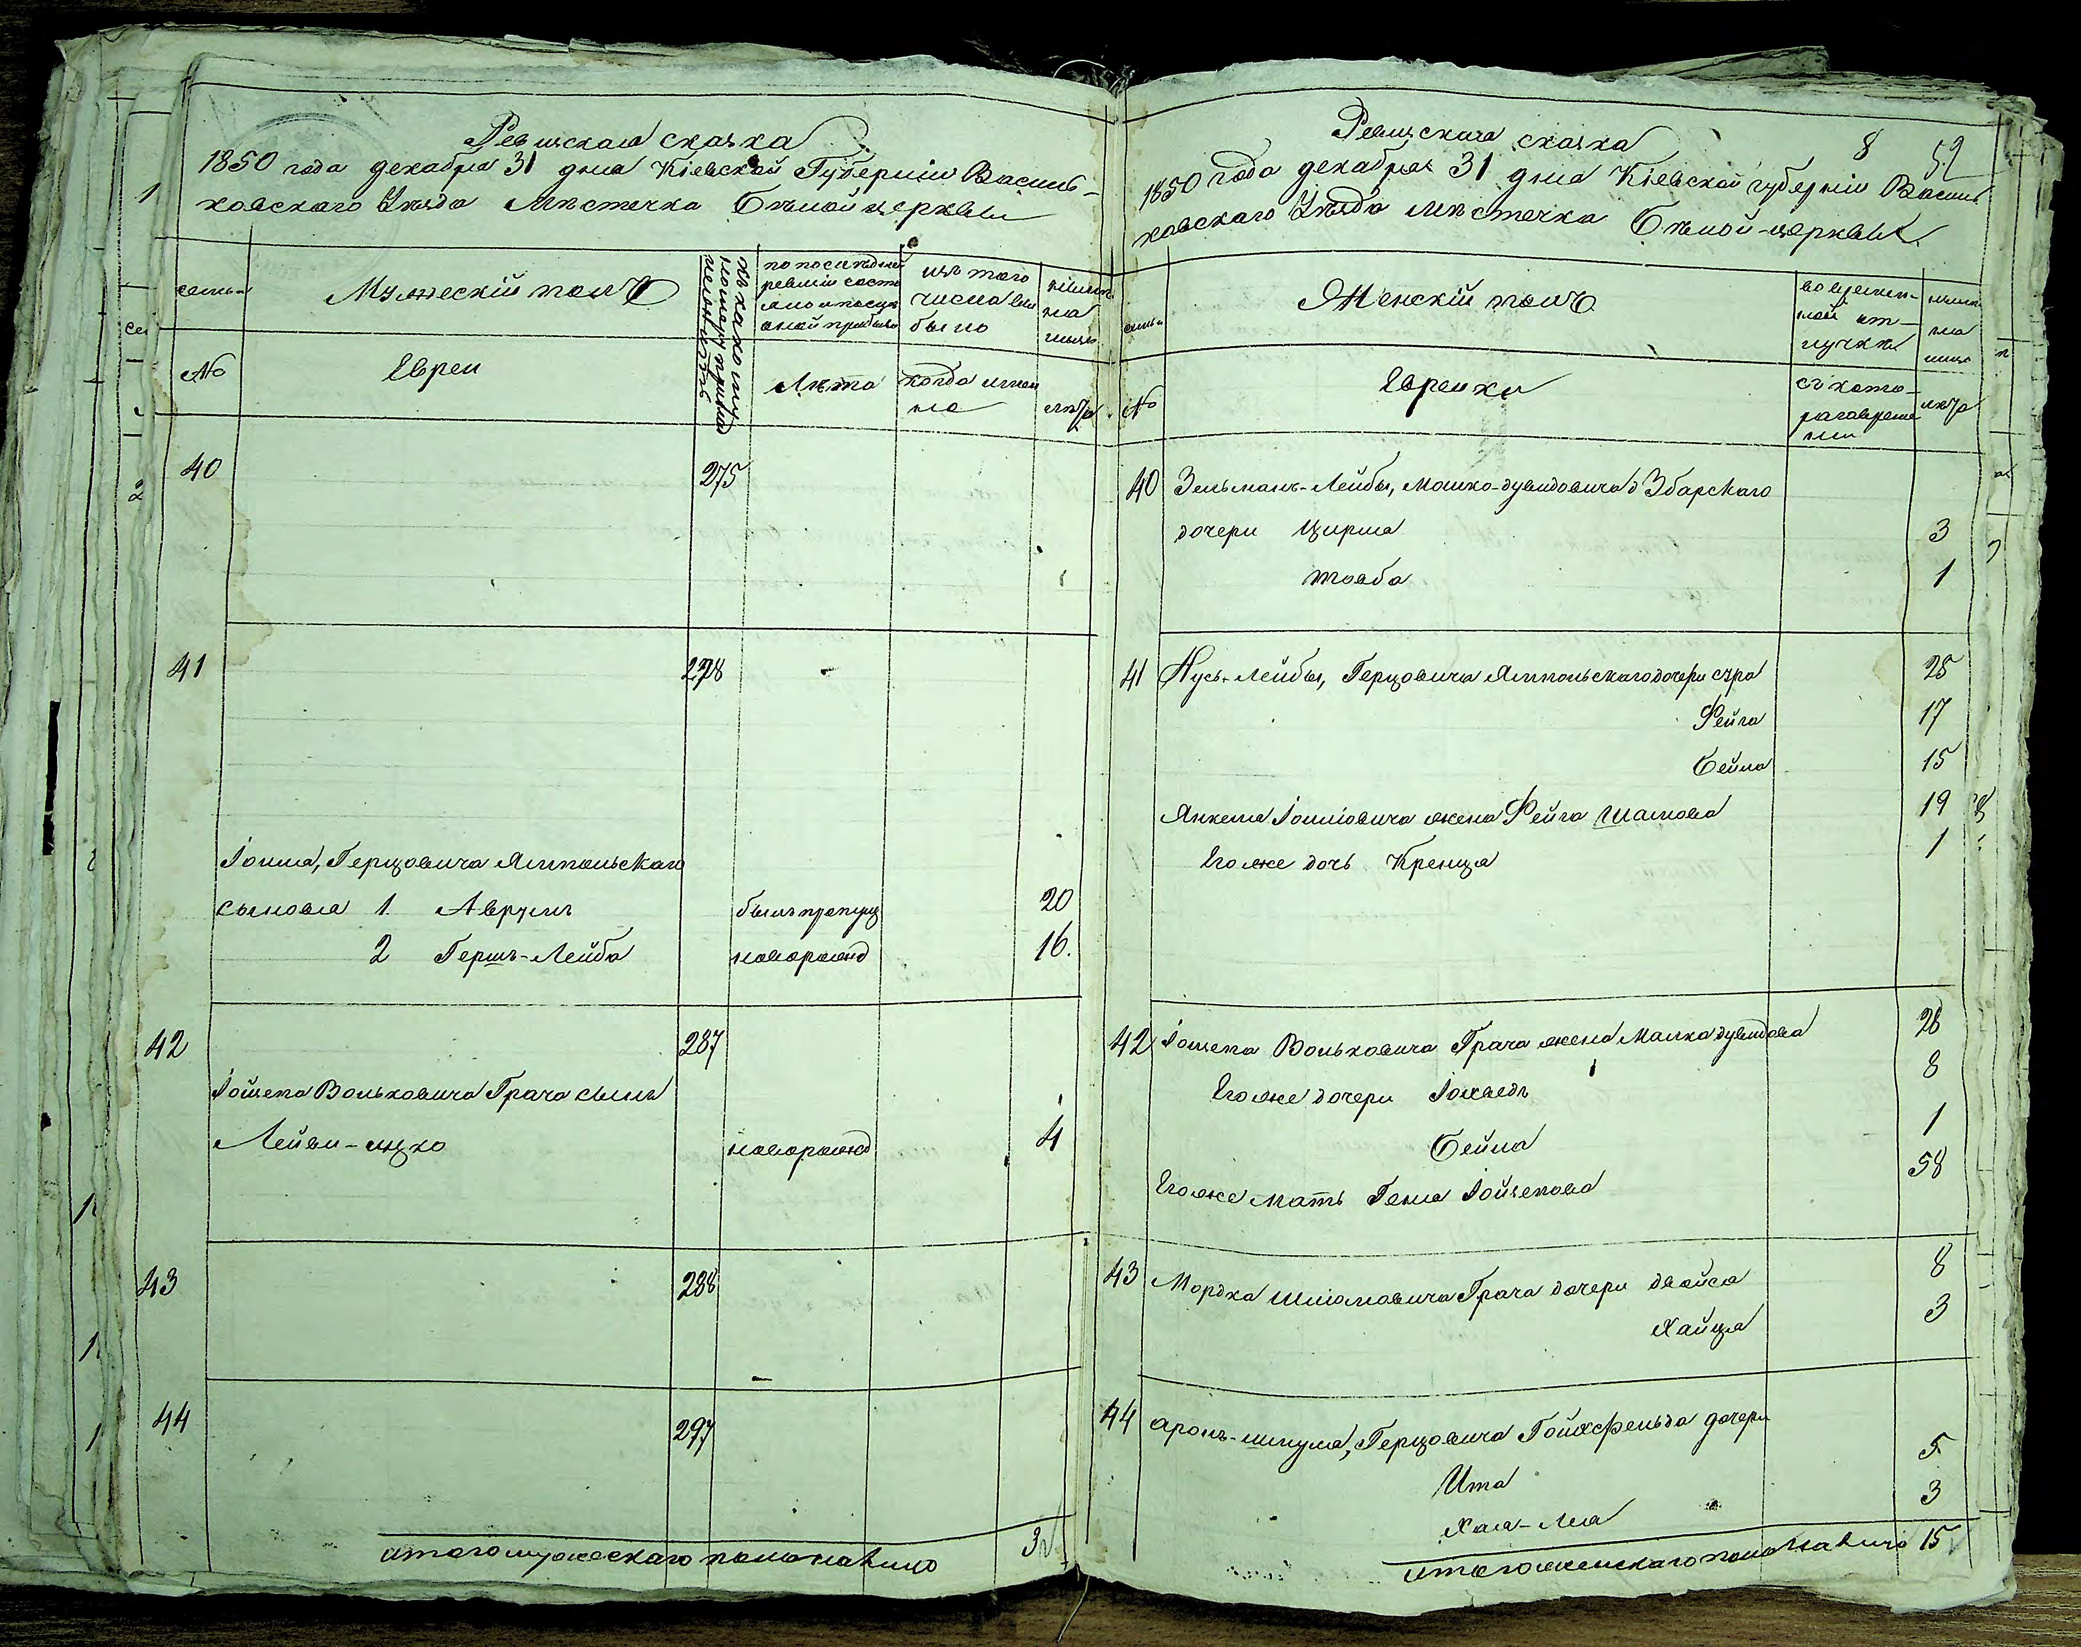 Ревизская сказка
1850 года декабря 31 дня Кіевской Губерніи Василь-
ковскаго Уезда Местечка Белой церкви
семьи
Мужескій полъ
по последней ревизіи состояло и после оной прибыло
изъ того числа выбыло
ныне на лицо
№
Евреи
Лета
когда имянно
летъ
40 275
41 278
Іоиля, Герцовича Ямпольскаго
сыновья 1 Аврумъ былъ пропущ 20
2 Гершъ-Лейба новорожд 16.
42 287
Іойсепа Вольковича Грача сынъ
Лейви-ицко новорожд 4
43 288
44 297
итого мужескаго пола на лицо 3
Ревизская сказка 8 52
1850 года декабря 31 дня Кіевской губерніи Василь
ковскаго Уезда местечка Белой-церкви
семьи
Женскій полъ
во временной отлучке
ныне на лицо
№
Еврейки
съ котораго времени
летъ
40 Зельманъ-Лейбы, Мошко-дувидовича Збарскаго
дочери Цирля 3
Товба 1
41 Нусь-Лейбы, Герцовича Ямпольскаго дочери сура 25
Фейга 17
Бейла 15
Янкеля Іоиліовича жена Фейга Шамова 19
Его же дочь Кренця 1
42 Іойсепа Вольковича Грача жена Малка дувидова 28
Его же дочери Іохведъ 8
Бейла 1
Его же мать Геня Іойсепова 58
43 Мордка Шліомовича Грача дочери двойся 8
Хайця 3
44 аронъ-шмуля, Герцовича Гойхфельда дочери
Ита 5
Хая-Леа 3
итого женскаго пола на лицо 15